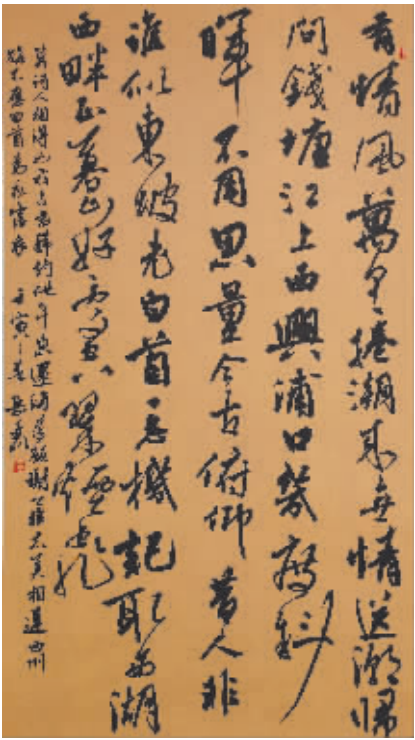 有情風萬里捲潮來無情送潮歸
問錢塘江上西興浦口幾度斜
暉不用思量今古俯仰昔人非
誰似東坡老白首忘機記取西湖
西畔正暮山好處空翠煙霏
算詩人相得如我與君稀約他年東還海道願謝公雅志莫相違西州
路不應回首為我霑衣 壬寅之春